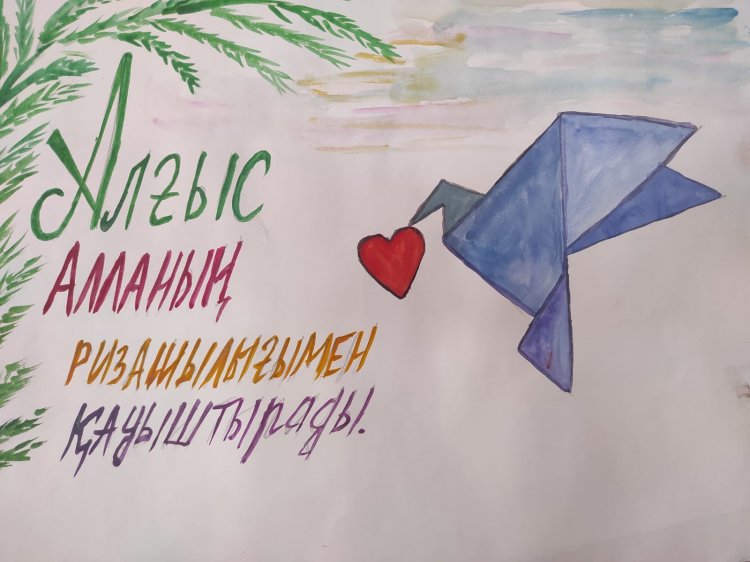 Алғыс
АЛЛАНЫҢ
РИЗАШЫЛЫҒЫМЕН
ҚАУЫШТЫРАДЫ.